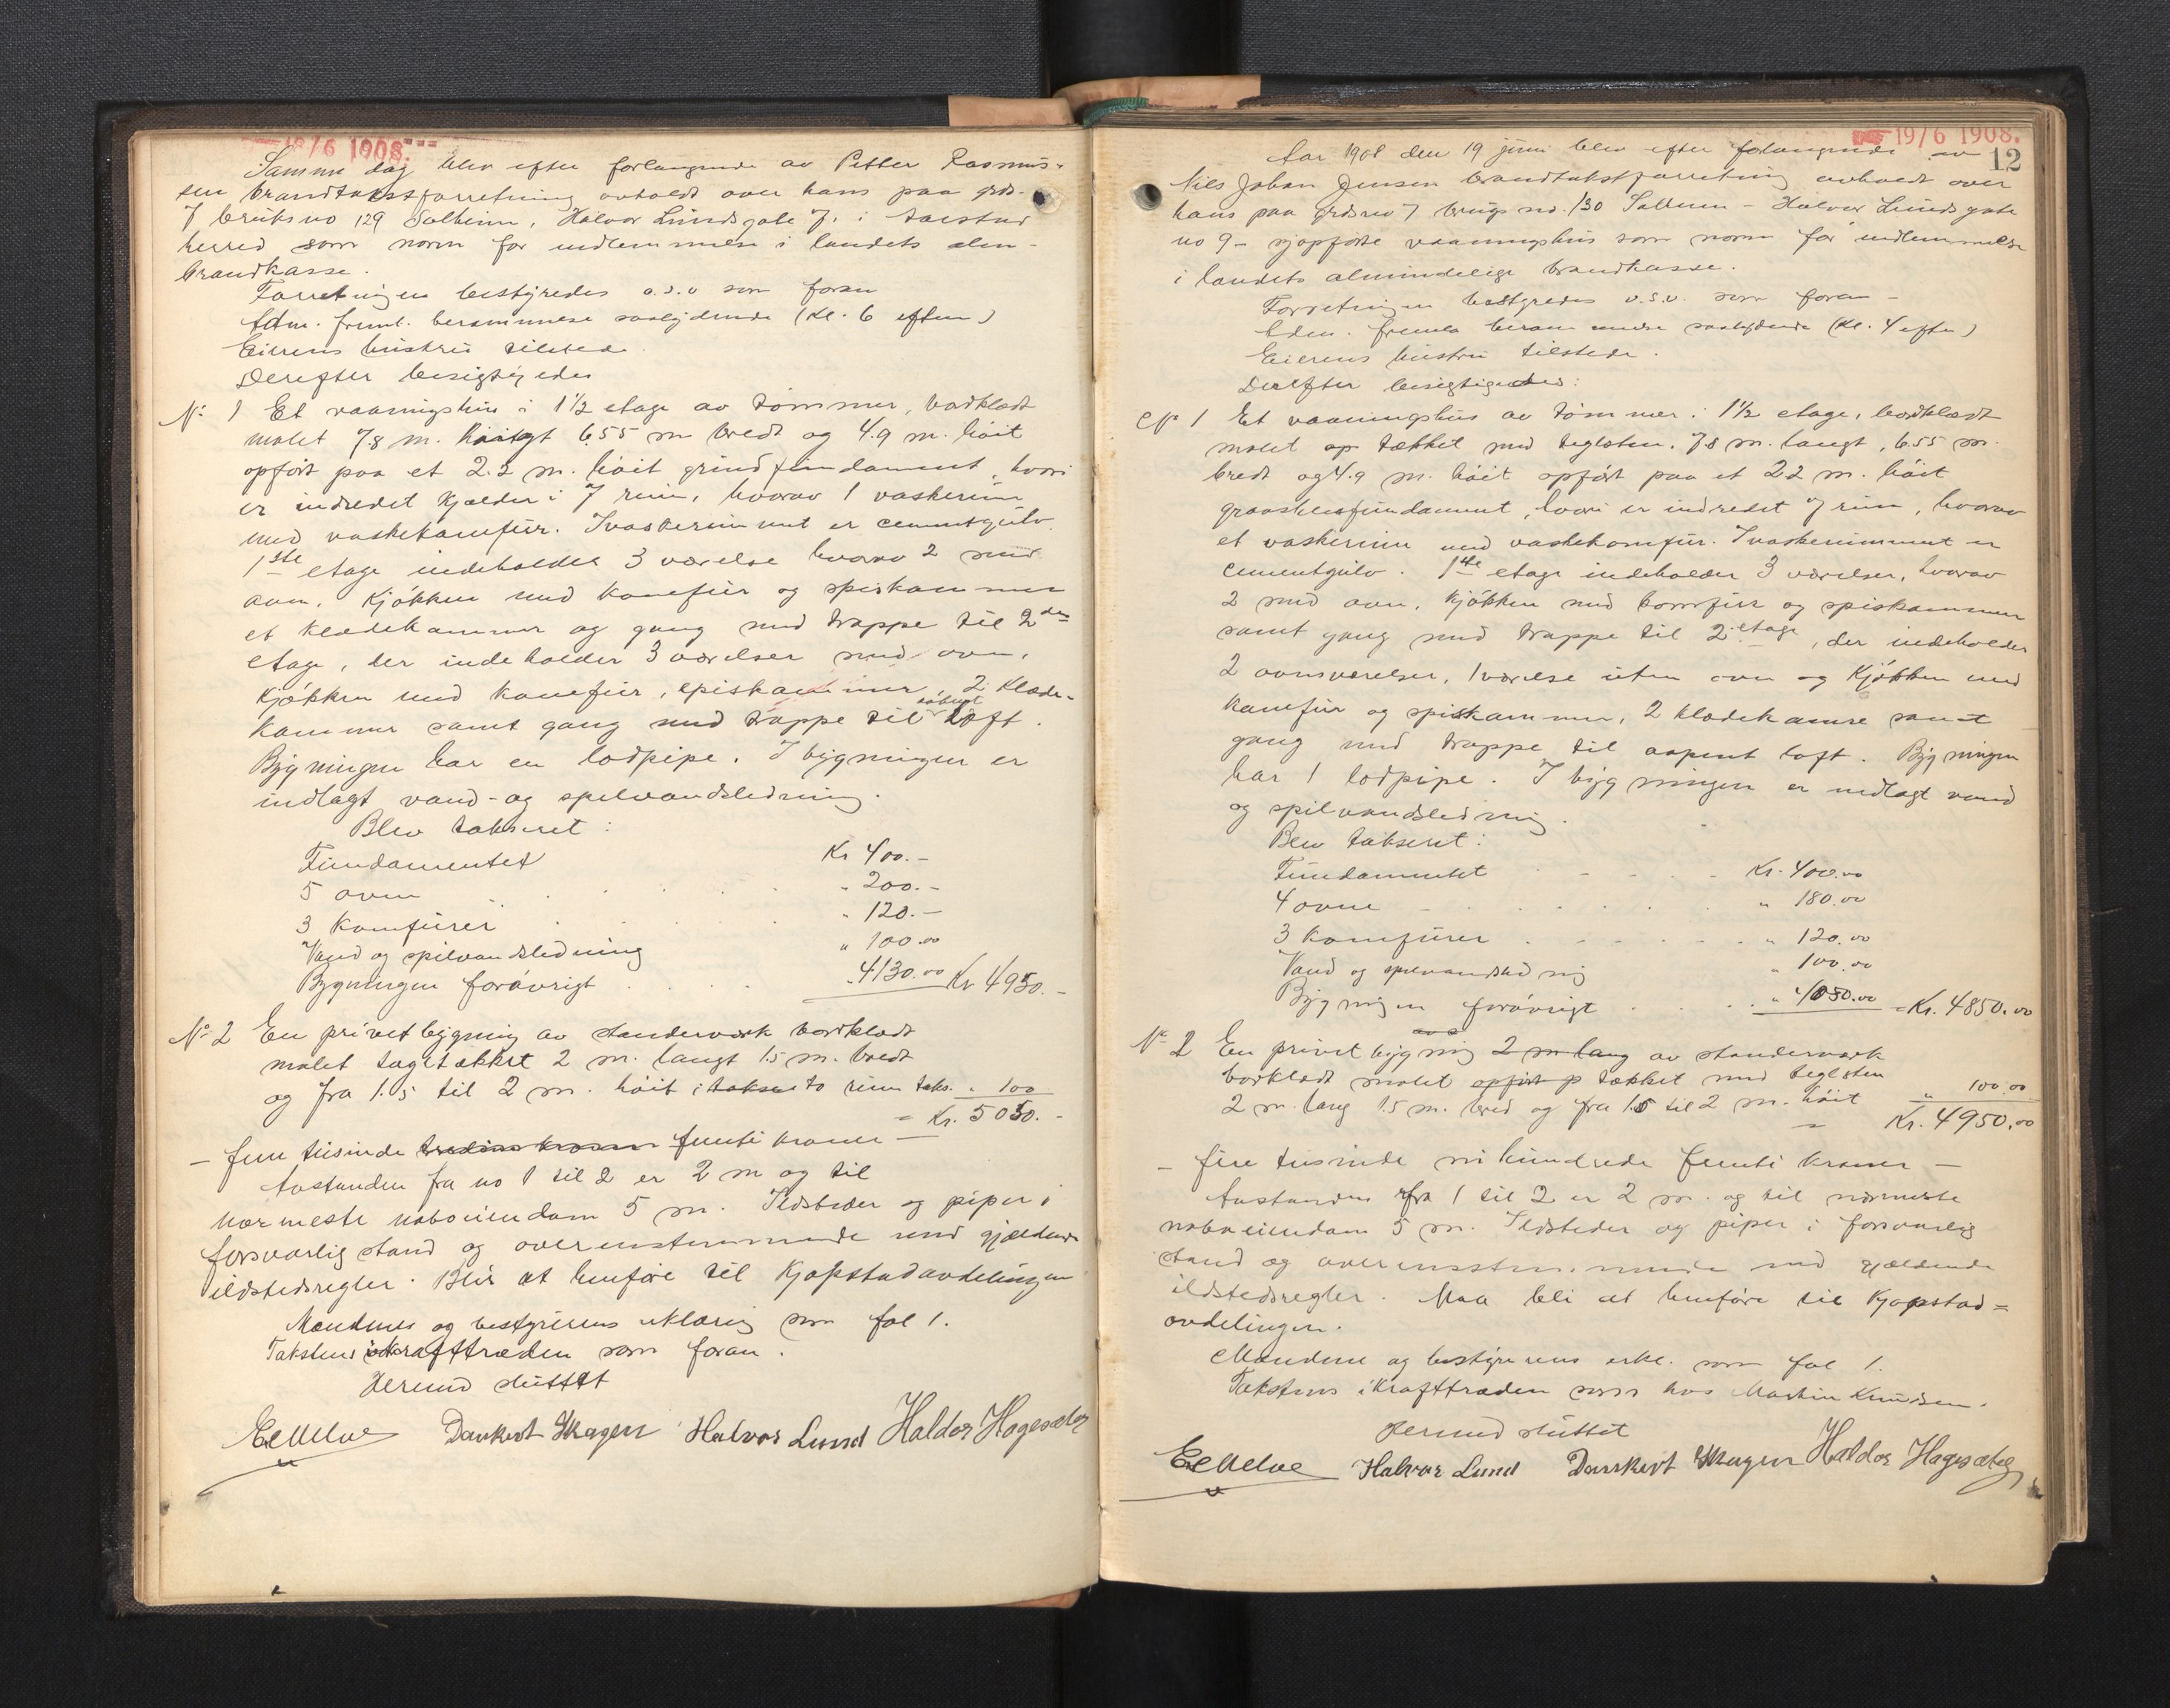 18/6 1908.
Samme dag blev efter forlangende av Petter Rasmus-
sen brandtakstforretning avholdt over hans paa grds-
7 bruksno 129 Solheim, Halvor Lundsgate 7, i Aarstad
herred som norm for indlemmelse i landets alm-
brandkasse.
Forretningen bestyredes o.s.v som foran
Edm. freml. berammelse saalydende (kl. 6 eftm)
Eierens hustru tilstede.
Derefter besigtigedes
No 1 Et vaaningshus i 1½ etage av tømmer, bordklædt
malet 7.8 m. langt 6.55 m bredt og 4.9 m. høit
opført paa et 2.2 m. høit grundfundament, hvori
er indredet kjelder i 7 rum, hvorav 1 vaskerum
med vaskekomfur. I vaskerummet er cementgulv.
1ste etage indeholder 3 værelse hvorav 2 med
ovn. Kjøkken med komfur og spiskammer
et klædekammer og gang med trappe til 2den
etage, der indeholder 3 værelser med ovn,
kjøkken med komfur, spiskammer, 2 klæde-
kammer samt gang med trappe til aapent loft.
Bygningen har en lodpipe. I bygningen er
indlagt vand- og spilvandsledning.
Blev takseret:
Fundamentet Kr 400.-
5 ovne " 200.-
3 Komfurer " 120.-
Vand og spilvandsledning " 100.00
Bygningen forøvrigt " 4130.00 Kr 4950.-
No 2 En privetbygning av stenderverk bordklædt
malet tagtækket 2 m. langt 1.5 m. bredt
og fra 1.5 til 2 m. høit i to rum taks. " 100
= Kr. 5050.-
- fem tusinde femti kroner -
Avstanden fra no 1 til 2 er 2 m og til
nærmeste naboeiendom 5 m. Ildsteder og piper i
forsvarlig stand og overensstemmende med gjældende
ildstedsregler. Blir at henføre til Kjøpstadavdelingen
Mændenes og bestyrerens erklæring som fol 1.
Takstens ikrafttræden som foran.
Hermed sluttet
Dankert Skagen Halvor Lund Haldor Hagesæter
19/6 1908.
12
Aar 1908 den 19 juni blev efter forlangende av
Nils Johan Jensen brandtakstforretning avholdt over
hans paa grdsno 7 brugs no. 130 Solheim - Halvor Lunds gate
no 9 - nyopførte vaaningshus som norm for indlemmelse
i landets almindelige brandkasse.
Forretningen bestyredes o.s.v. som foran -
Edm. freml. berammelse saalydende (kl. 4 eftm)
Eierens hustru tilstede.
Derefter besigtigedes:
No 1 Et vaaningshus av tømmer i 1½ etage, bordklædt
malet og tækket med teglsten. 7.8 m. langt, 6.55 m.
bredt og 4.9 m. høit opført paa et 2.2 m. høit
graastensfundament, hvori er indredet 7 rum, hvorav
et vaskerum med vaskekomfur. I vaskerummet er
cementgulv. 1ste etage indeholder 3 værelser, hvorav
2 med ovn, kjøkken med komfur og spiskammer
samt gang med trappe til 2. etage, der indeholder
2 ovnsværelser, 1 værelse uten ovn og kjøkken med
komfur og spiskammer, 2 klædekamre samt
gang med trappe til aapent loft. Bygningen
har 1 lodpipe. I bygningen er indlagt vand
og spilvandsledning.
Blev takseret:
Fundamentet Kr. 400.00
4 ovne " 180.00
3 komfurer " 120.00
Vand og spilvandsledning " 100.00
Bygningen forøvrigt " 4050.00 = Kr. 4850.00
No 2 En privetbygning 2 m lang av stenderverk
bordklædt malet opført p tækket med teglsten
2 m. lang 1.5 m. bred og fra 1.5 til 2 m. høit " 100.00
= Kr. 4950.00
- fire tusinde ni hundrede femti kroner -
Avstanden fra 1 til 2 er 2 m. og til nærmeste
naboeiendom 5 m. Ildsteder og piper i forsvarlig
stand og overensstemmende med gjældende
ildstedsregler. Maa bli at henføre til Kjøpstad=
avdelingen.
Mændene og bestyrerens erkl. som fol 1.
Takstens ikrafttræden som hos Martin Knudsen.
Hermed sluttet
Halvor Lund Dankert Skagen Haldor Hagesæter